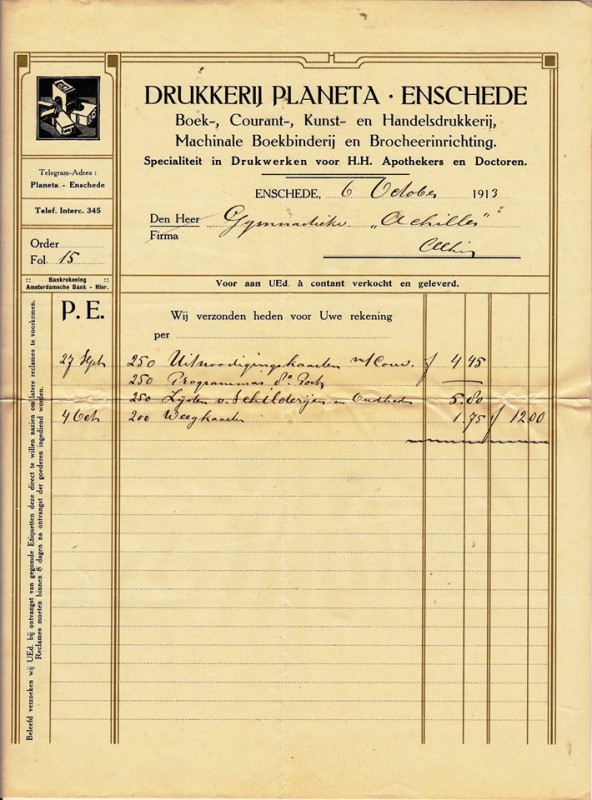 DRUKKERIJ PLANETA · ENSCHEDE
Boek-, Courant-, Kunst- en Handelsdrukkerij,
Machinale Boekbinderij en Brocheerinrichting.
Specialiteit in Drukwerken voor H.H. Apothekers en Doctoren.
Telegram-Adres :
Planeta - Enschede
Telef. Interc. 345
Order
Fol. 15
:: Bankrekening ::
Amsterdamsche Bank - Hier.
ENSCHEDE, 6 October 1913
Den Heer
Firma
Gymnastiekv. „Achilles"
Alhier
Voor aan UEd. à contant verkocht en geleverd.
P. E.
Wij verzonden heden voor Uwe rekening
per
27 Sept 250 Uitnoodigingskaarten m/Couv. f 4 45
250 Programmas
250 Lijsten v. Schilderijen en Oudheden 5.80
4 Oct 200 Weegkaarten 1.75 f 12.00
Beleefd verzoeken wij UEd. bij ontvangst van gegomde Etiquetten deze direct te willen nazien om latere reclames te voorkomen.
Reclames moeten binnen 8 dagen na ontvangst der goederen ingediend worden.